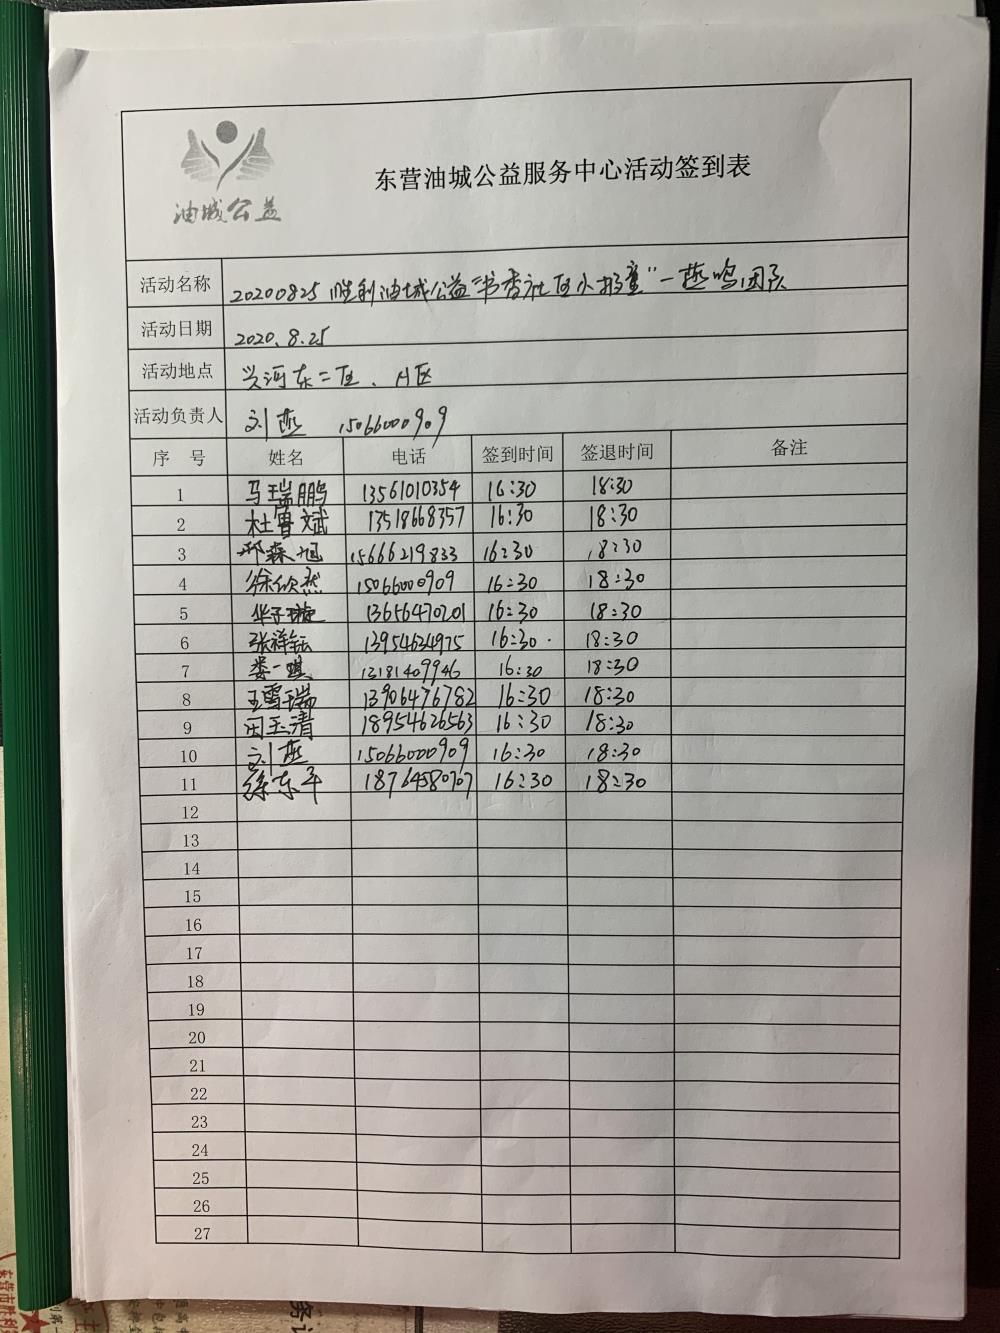 油城公益
东营油城公益服务中心活动签到表
活动名称 20200825 胜利油城公益"书香社区小书童"一燕鸣团队
活动日期 2020.8.25
活动地点 兴河东二区、A区
活动负责人 刘燕 15066000909
序号 姓名 电话 签到时间 签退时间 备注
1 马瑞鹏 13561010354 16:30 18:30
2 杜鲁斌 13518668357 16:30 18:30
3 邓森旭 15666219833 16:30 18:30
4 徐欣然 15066000909 16:30 18:30
5 华子璇 13656470201 16:30 18:30
6 张祥钰 13954634975 16:30 18:30
7 娄一琪 13181409946 16:30 18:30
8 王雪瑞 13906476782 16:30 18:30
9 田玉清 18954626563 16:30 18:30
10 刘燕 15066000909 16:30 18:30
11 徐东平 18764580707 16:30 18:30
12
13
14
15
16
17
18
19
20
21
22
23
24
25
26
27